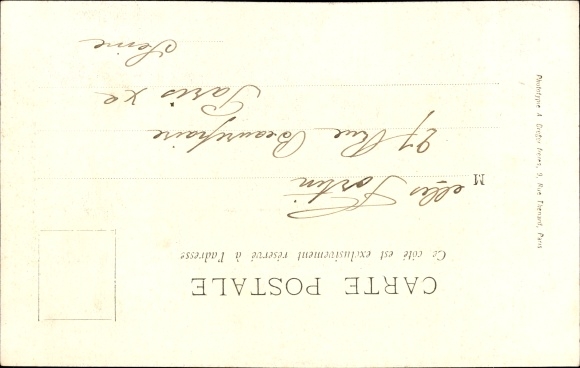 CARTE POSTALE
Ce côté est exclusivement réservé à l'adresse
M elles Fortin
27 Rue Beaurepaire
Paris Xe
Seine
Phototypie A. Breger frères, 9, Rue Thénard, Paris